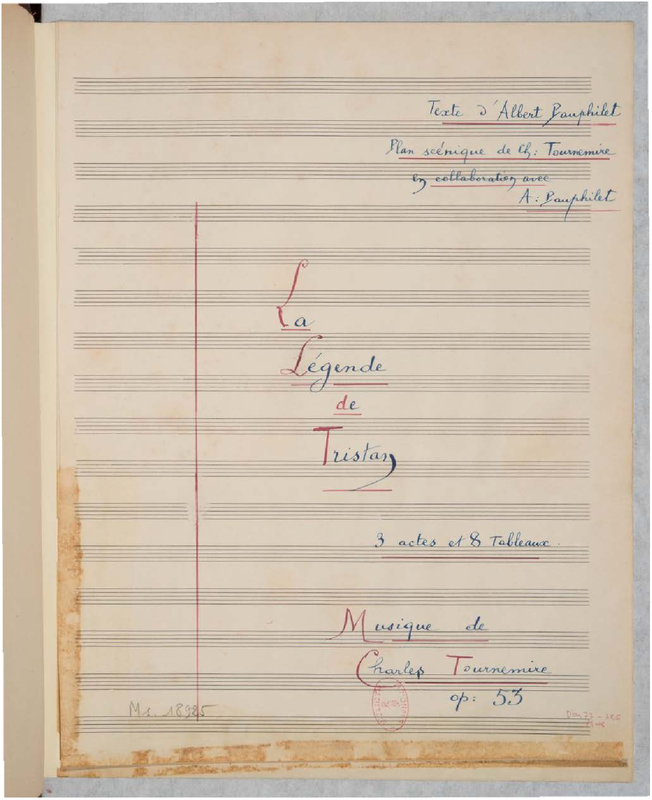 Texte d'Albert Pauphilet
Plan scénique de Ch: Tournemire
en collaboration avec
A: Pauphilet
La
Légende
de
Tristan
3 actes et 8 Tableaux.
Musique de
Charles Tournemire
op: 53
Ms. 18925